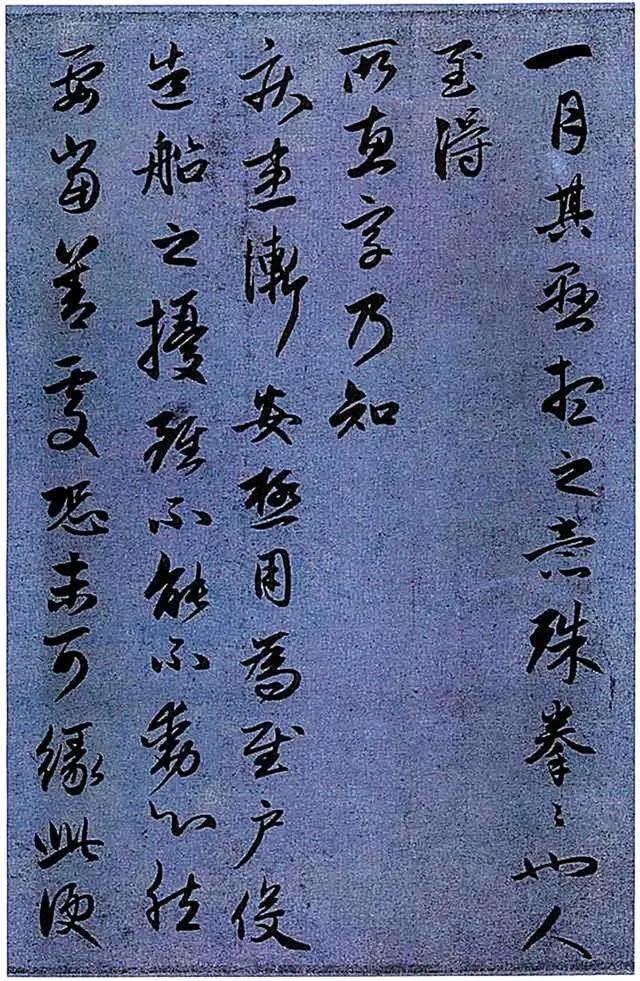 一月其想之意殊拳〻也人
至得
所惠字乃知
疾恙漸安極用為慰户役
造船之擾雖不能不動心然
要當善處恐未可緣此便